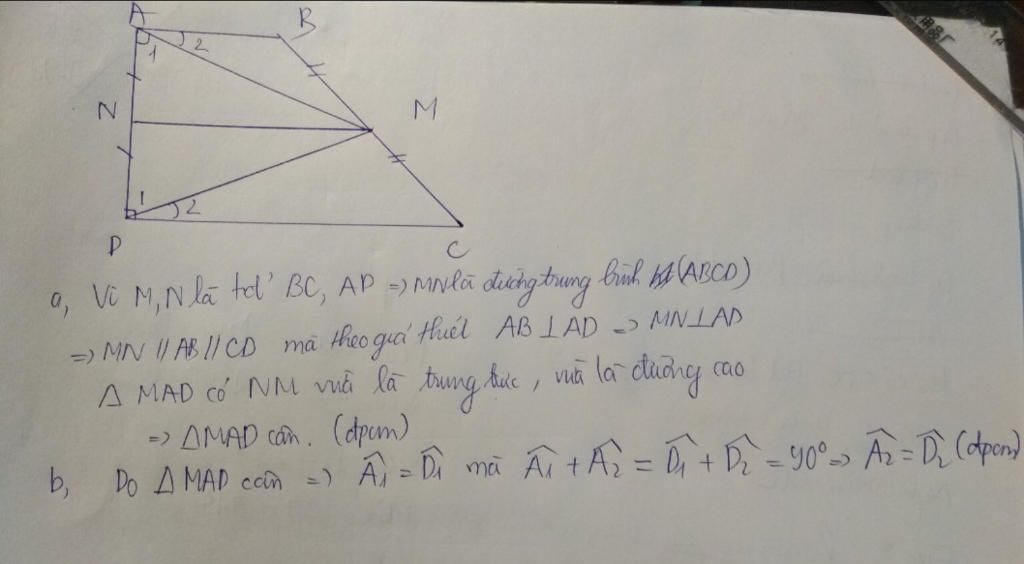 A B
1 2
N M
1 2
D C
a, Vì M, N là tđ' BC, AD => MN là đường trung bình (ABCD)
=> MN // AB // CD mà theo giả thiết AB ⊥ AD => MN ⊥ AD
Δ MAD có NM vừa là trung trực, vừa là đường cao
=> ΔMAD cân. (đpcm)
b, Do Δ MAD cân => Â1 = D̂1 mà Â1 + Â2 = D̂1 + D̂2 = 90° => Â2 = D̂2 (đpcm)
14